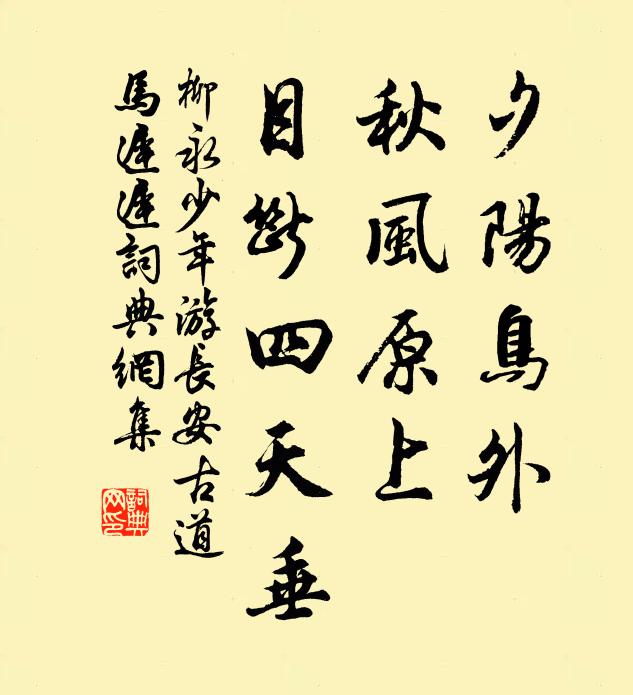 夕陽鳥外
秋風原上
目斷四天垂
柳永少年游長安古道
馬遲遲詞典網集
詞典
网印